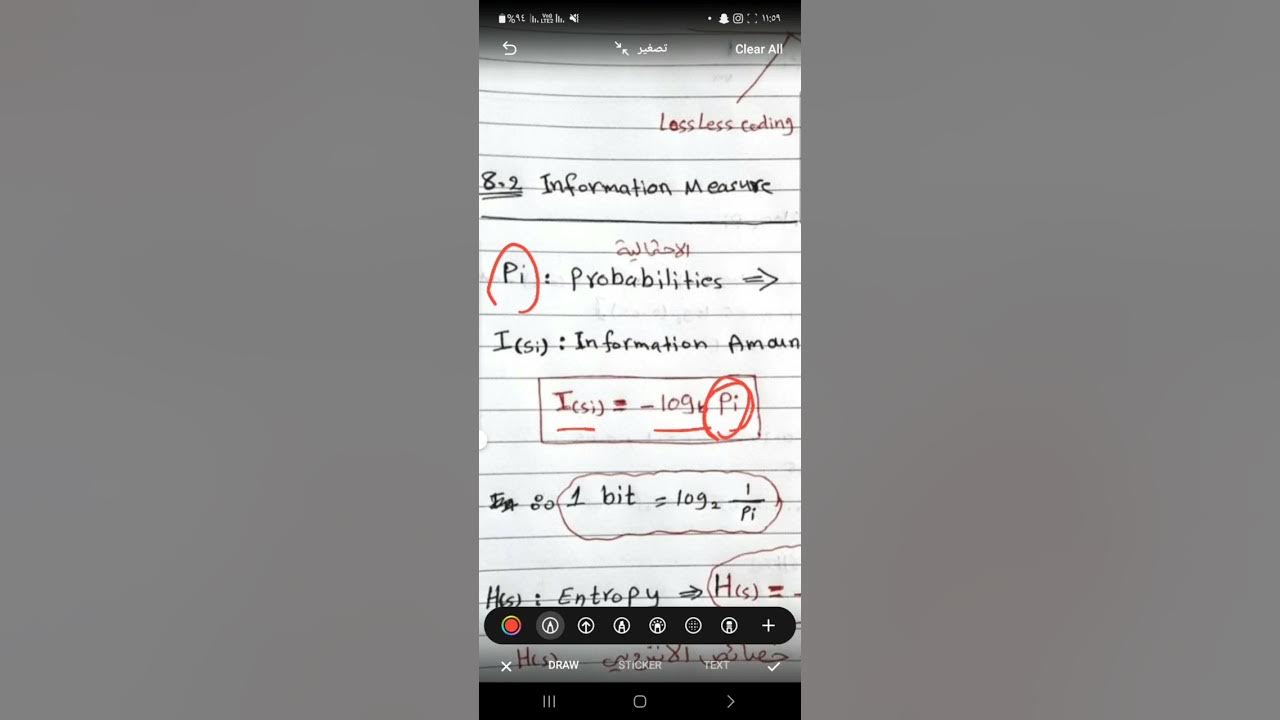 %٩٤ ١١:٥٩
تصغير Clear All
Lossless coding
8.2 Information Measure
الاحتمالية
Pi : Probabilities ⇒
I(si) : Information Amoun
I(si) = -log Pi
1 bit = log₂ 1/Pi
H(s) : Entropy ⇒ H(s) = -
H(s) خصائص الانتروبي
DRAW STICKER TEXT